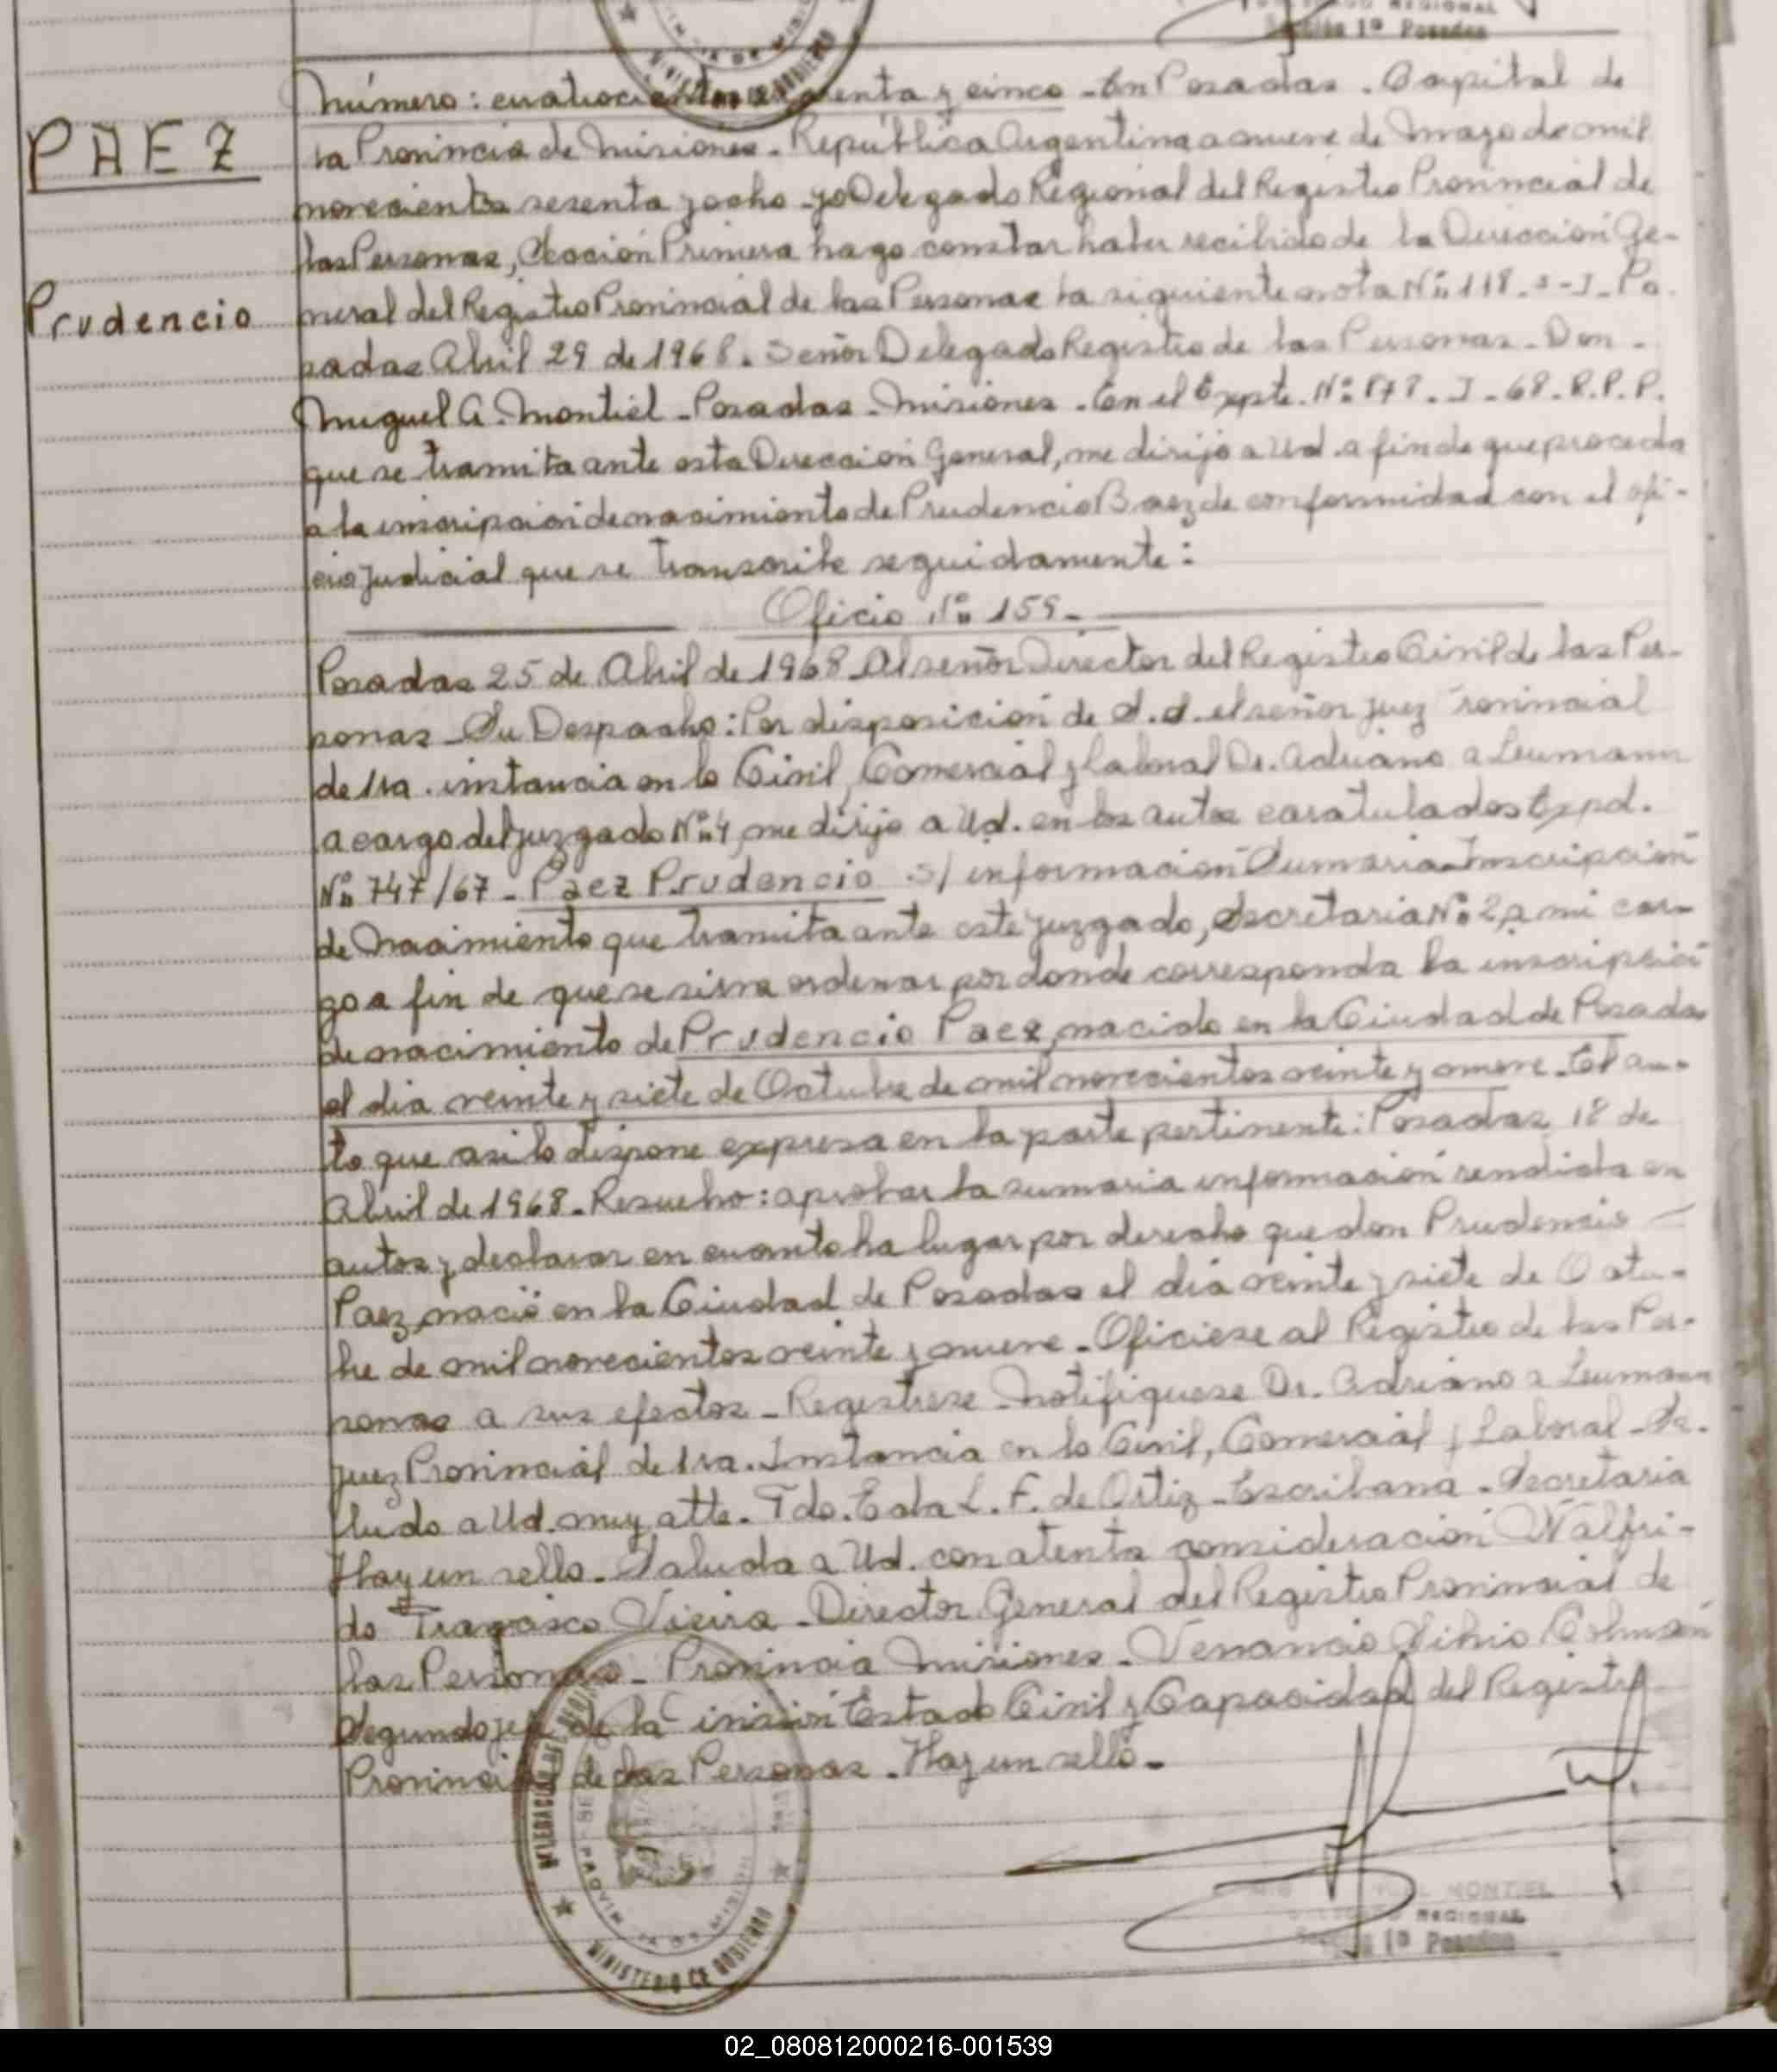 REGIONAL
Sección 1ª Posadas
MINISTERIO DE GOBIERNO
Número: cuatrocientos y cinco - En Posadas. Capital de
PAEZ
la Provincia de Misiones - República Argentina a nueve de Mayo de mil
novecientos sesenta y ocho - yo Delegado Regional del Registro Provincial de
las Personas, Sección Primera hago constar haber recibido de la Dirección Ge-
Prudencio
neral del Registro Provincial de las Personas la siguiente nota Nº 118 - - J - Po
sadas Abril 29 de 1968. Señor Delegado Registro de las Personas - Don -
Miguel A. Montiel - Posadas - Misiones - En el Expte. Nº 878 - J - 68 - R.P.P.
que se tramita ante esta Dirección General, me dirijo a Ud. a fin de que proceda
a la inscripción de nacimiento de Prudencio Baez de conformidad con el ofi-
cio judicial que se transcribe seguidamente:
Oficio Nº 159 -
Posadas 25 de Abril de 1968 Al señor Director del Registro Civil de las Per-
sonas - Su Despacho: Por disposición de S.S. el señor juez Provincial
de 1ra. instancia en lo Civil, Comercial y Laboral Dr. Adriano a Leumann
a cargo del juzgado Nº 4, me dirijo a Ud. en los autos caratulados Expd.
Nº 747/67 - Paez Prudencio S/ información Sumaria - Inscripción
de Nacimiento que tramita ante este juzgado, Secretaria Nº 2, a mi car-
go a fin de que se sirva ordenar por donde corresponda la inscripció
de nacimiento de Prudencio Paez, nacido en la Ciudad de Posadas
el dia veinte y siete de Octubre de mil novecientos veinte y nueve - El au-
to que asi lo dispone expresa en la parte pertinente: Posadas 18 de
Abril de 1968 - Resuelvo: aprobar la sumaria información rendida en
autos y declarar en cuanto ha lugar por derecho que don Prudencio -
Paez, nació en la Ciudad de Posadas el dia veinte y siete de Octu-
bre de mil novecientos veinte y nueve - Oficiese al Registro de las Per-
sonas a sus efectos - Registrese - Notifiquese Dr. Adriano a Leumann
juez Provincial de 1ra. Instancia en lo Civil, Comercial y Laboral - Sa-
ludo a Ud. muy atte. Fdo. Eda L. F. de Ortiz - Escribana - Secretaria
Hay un sello - Saluda a Ud. con atenta consideración Walfri-
do Vieira - Director General del Registro Provincial de
las Personas - Provincia Misiones - Venancio Silvio Colman
Segundo jefe de la Estado Civil y Capacidad del Registro
Provincial de las Personas - Hay un sello -
MINISTERIO DE GOBIERNO
MONTIEL
REGIONAL
Sección 1ª Posadas
02_080812000216-001539